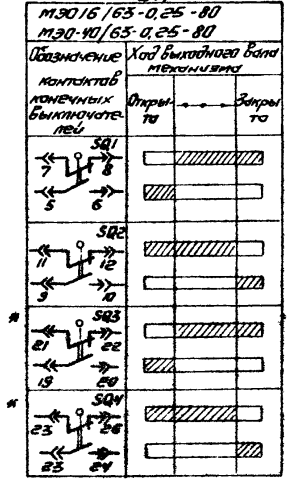 МЭО16/63-0,25-80
МЭО-40/63-0,25-80
Обозначение
контактов
конечных
выключате-
лей
Ход выходного вала
механизма
Откры-
та
Закры
та
SQ1
7 8
5 6
SQ2
11 12
9 10
*
SQ3
21 22
19 20
*
SQ4
23 26
23 24